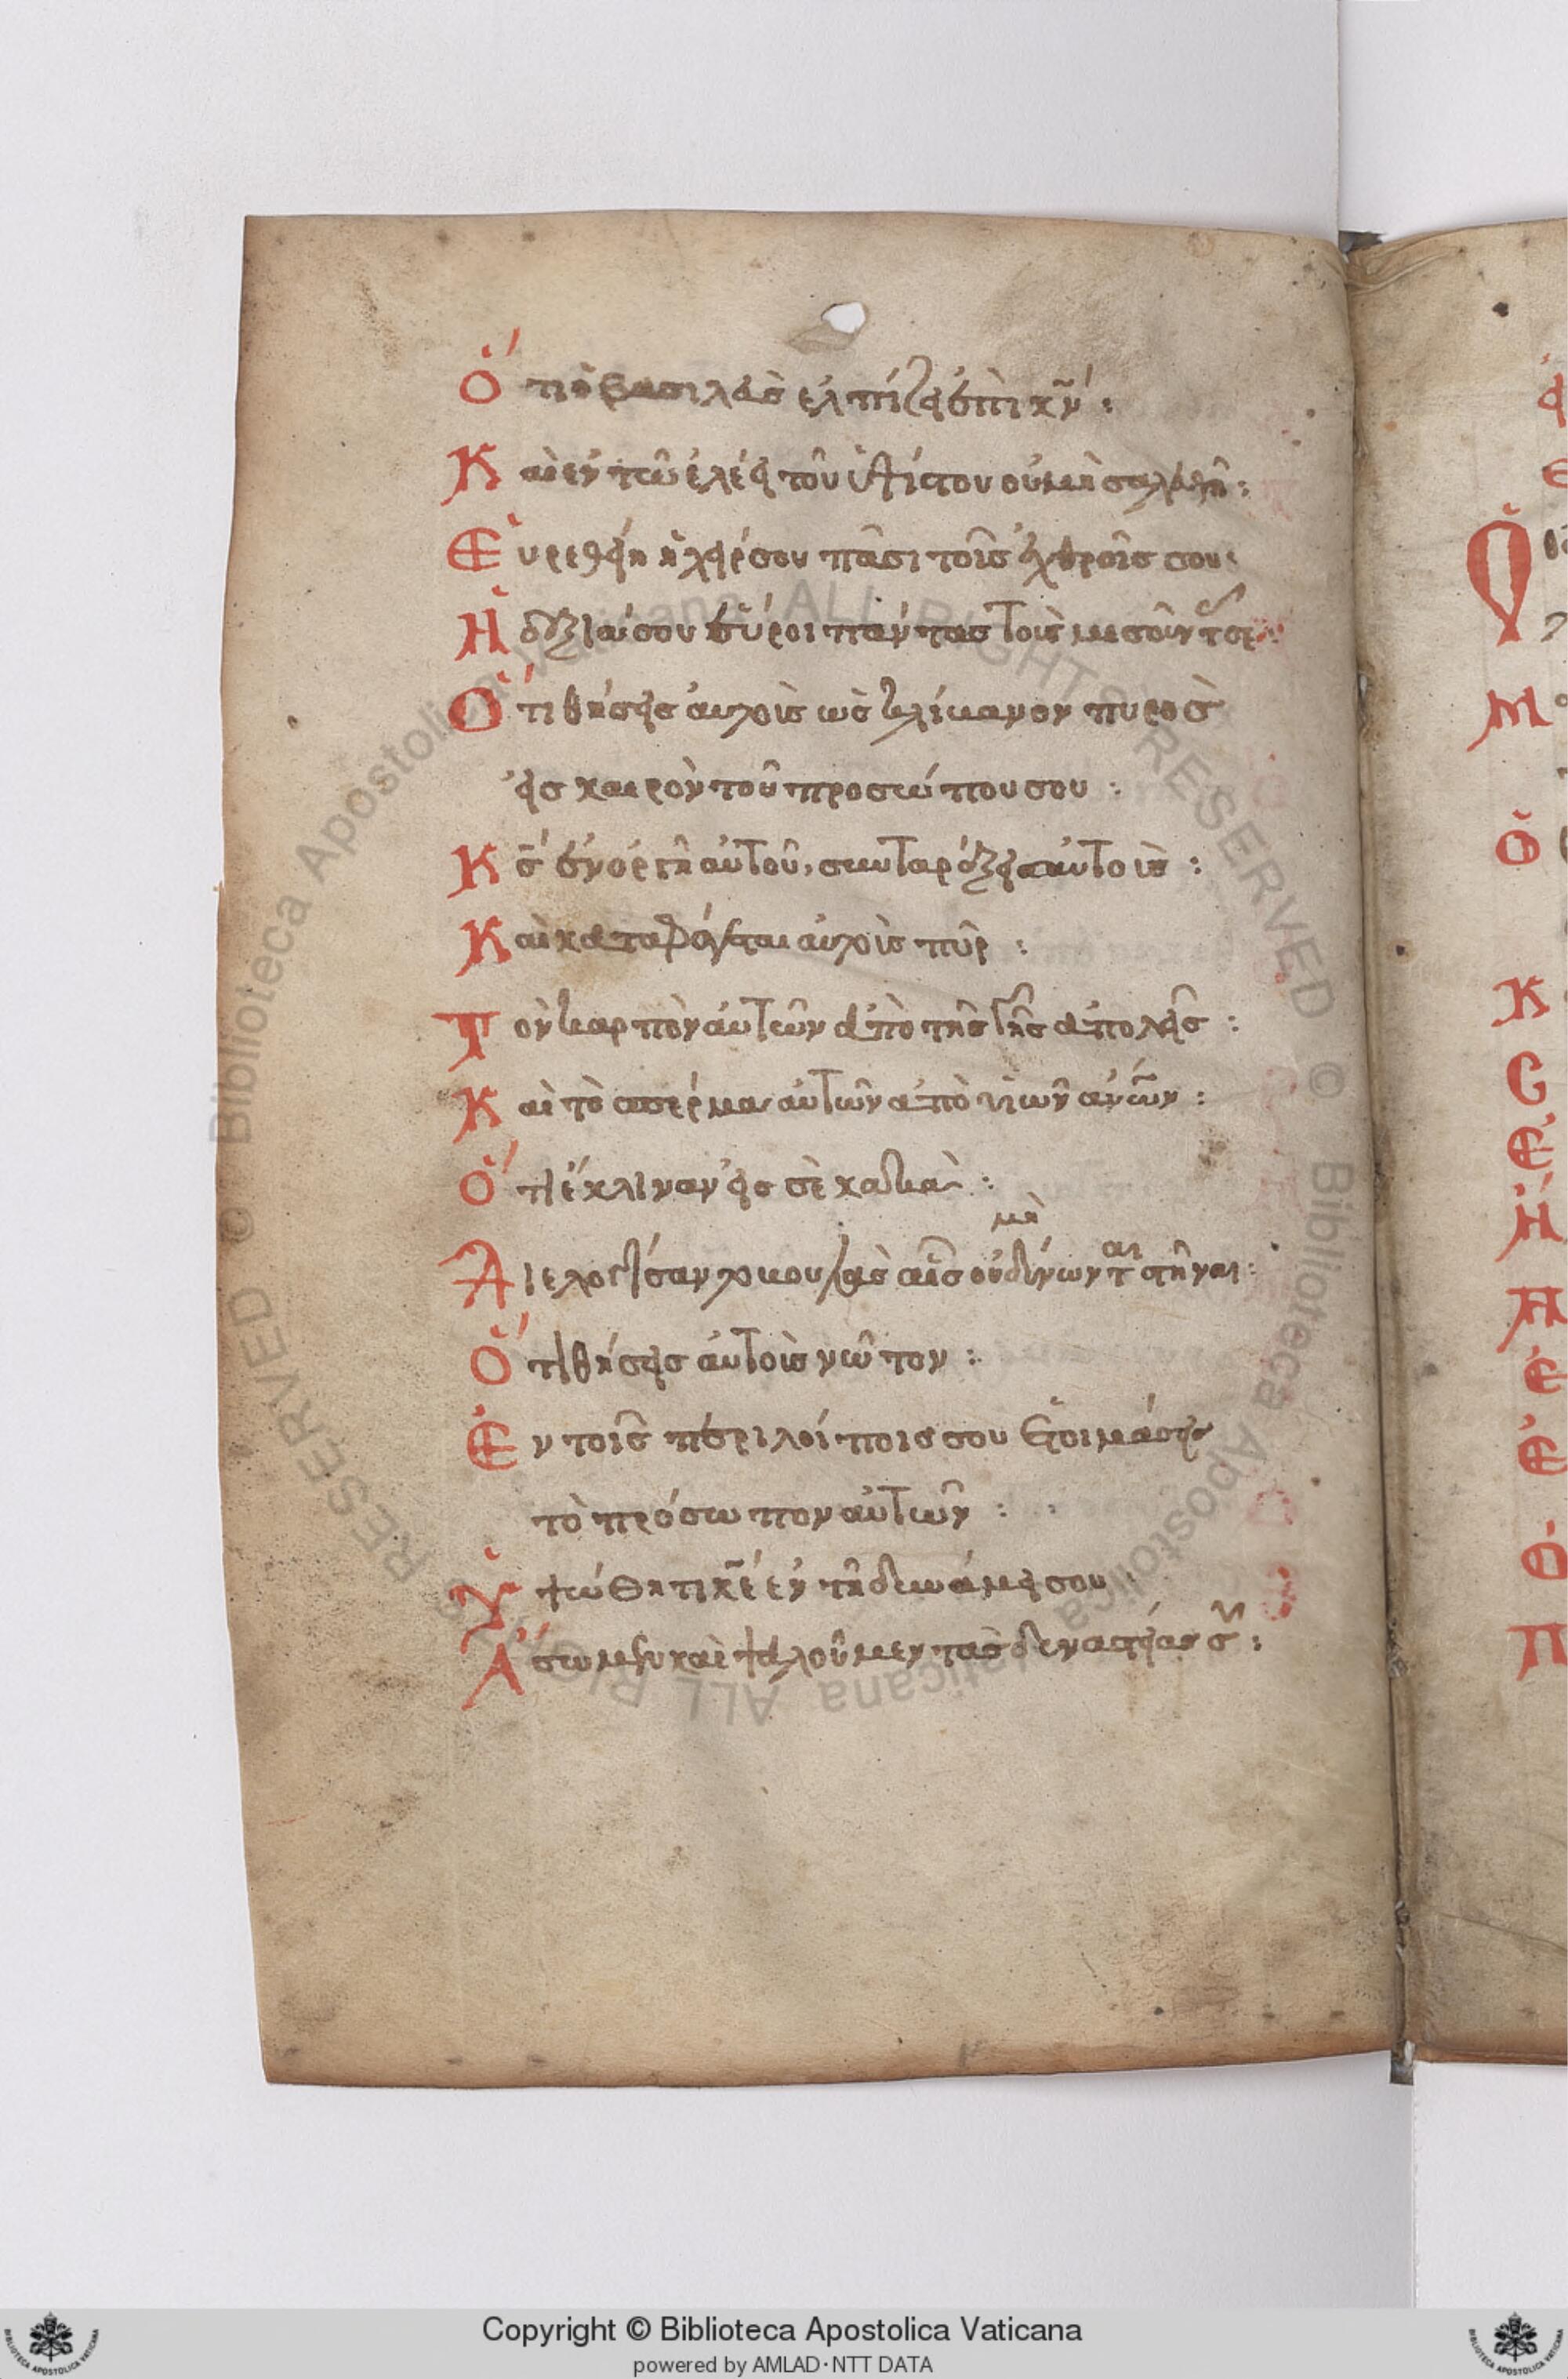 Ὅτι ὁ βασιλεὺς ἐλπίζει ἐπὶ κν̅:
Καὶ ἐν τῶ ἐλέει τοῦ ὑψίστου οὐ μὴ σαλευθῆ:
Εὑρεθείη ἡ χείρ σου πᾶσι τοῖς ἐχθροῖς σου:
Ἡ δεξιά σου εὕροι πάντας τοὺς μισοῦντ σε:
Ὅτι θήσεις αὐτοὺς ὡς κλίβανον πυρὸς
εἰς καιρὸν τοῦ προσώπου σου:
Κς̅ ἐν ὀργῆ αὐτοῦ, συνταράξει αὐτοὺς:
Καὶ καταφάγεται αὐτοὺς πῦρ:
Τὸν καρπὸν αὐτῶν ἀπὸ τῆς γῆς ἀπολεῖς:
Καὶ τὸ σπέρμα αὐτῶν ἀπὸ υἱῶν ἀν̅ων:
Ὅτι ἔκλιναν εἰς σὲ κακὰ:
μὴ
Διελογίσαντο βουλὰς αἷς οὐ δύνωνται στῆναι:
Ὅτι θήσεις αὐτοὺς νῶτον:
Ἐν τοῖς περιλοίποις σου ἑτοιμάσεις
τὸ πρόσωπον αὐτῶν:
Ὑψώθητι κε̅ ἐν τῆ δυνάμει σου
Ἄσωμεν καὶ ψαλοῦμεν τὰς δυναστείας σου:
© Biblioteca Apostolica Vaticana ALL RIGHTS RESERVED © Biblioteca Apostolica Vaticana ALL RIGHTS RESERVED
Copyright © Biblioteca Apostolica Vaticana
powered by AMLAD·NTT DATA